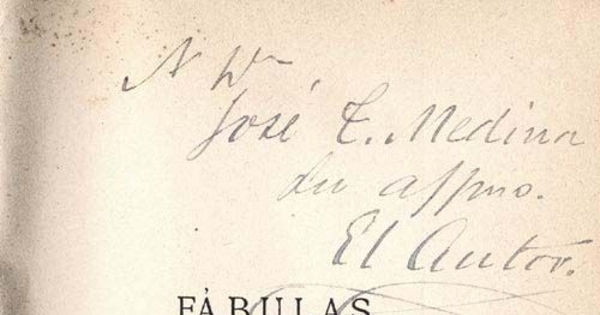 A Dn.
José T. Medina
su affmo.
El Autor.
FÁBULAS